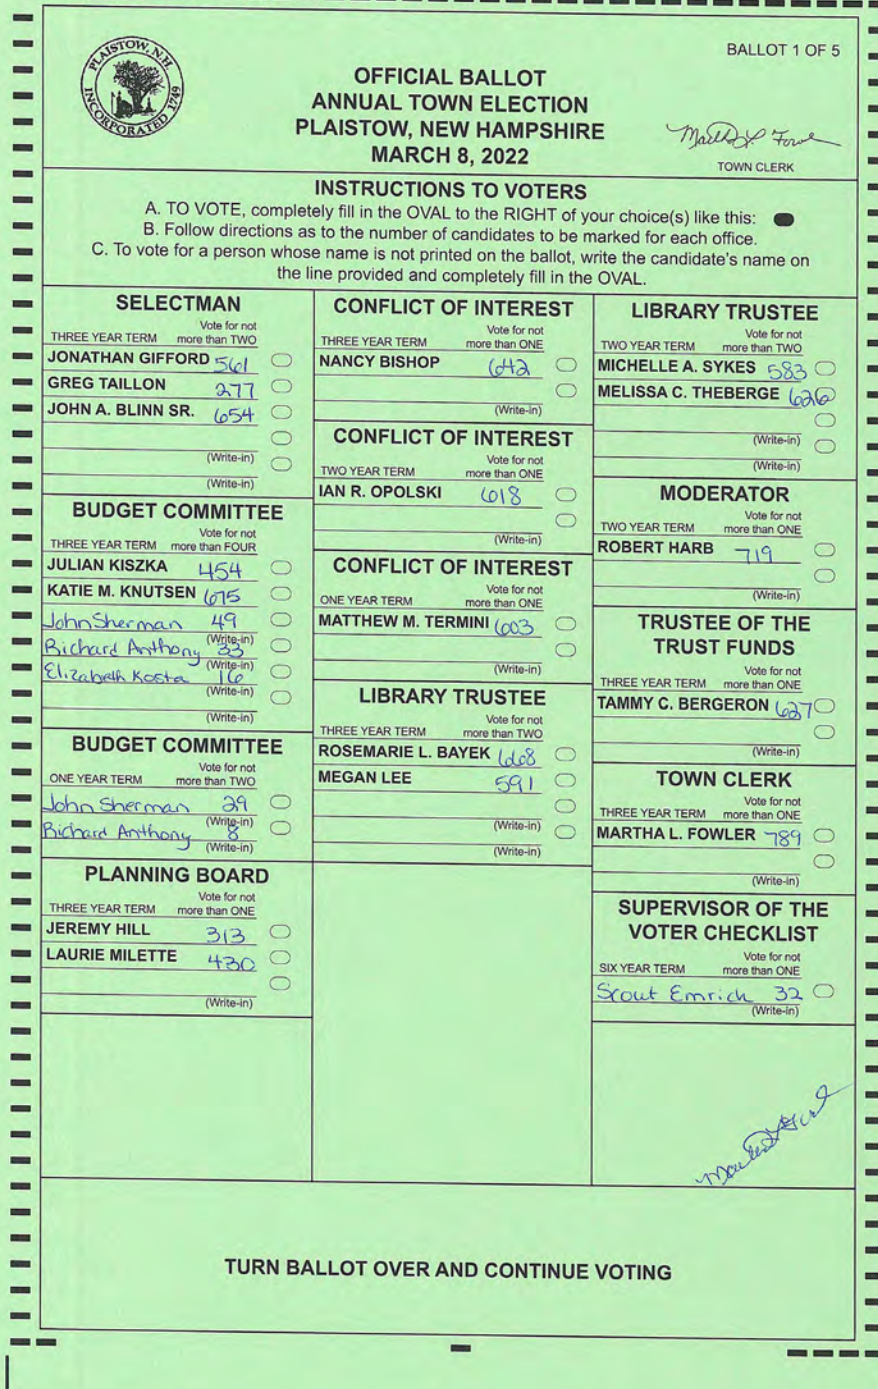 PLAISTOW, N.H.
INCORPORATED 1749
BALLOT 1 OF 5
OFFICIAL BALLOT
ANNUAL TOWN ELECTION
PLAISTOW, NEW HAMPSHIRE
MARCH 8, 2022
TOWN CLERK
INSTRUCTIONS TO VOTERS
A. TO VOTE, completely fill in the OVAL to the RIGHT of your choice(s) like this:
B. Follow directions as to the number of candidates to be marked for each office.
C. To vote for a person whose name is not printed on the ballot, write the candidate's name on
the line provided and completely fill in the OVAL.
SELECTMAN
Vote for not
THREE YEAR TERM more than TWO
JONATHAN GIFFORD 561
GREG TAILLON 277
JOHN A. BLINN SR. 654
(Write-in)
(Write-in)
BUDGET COMMITTEE
Vote for not
THREE YEAR TERM more than FOUR
JULIAN KISZKA 454
KATIE M. KNUTSEN 675
John Sherman 49
(Write-in)
Richard Anthony 33
(Write-in)
Elizabeth Kosta 16
(Write-in)
(Write-in)
BUDGET COMMITTEE
Vote for not
ONE YEAR TERM more than TWO
John Sherman 29
(Write-in)
Richard Anthony 8
(Write-in)
PLANNING BOARD
Vote for not
THREE YEAR TERM more than ONE
JEREMY HILL 313
LAURIE MILETTE 430
(Write-in)
CONFLICT OF INTEREST
Vote for not
THREE YEAR TERM more than ONE
NANCY BISHOP 642
(Write-in)
CONFLICT OF INTEREST
Vote for not
TWO YEAR TERM more than ONE
IAN R. OPOLSKI 618
(Write-in)
CONFLICT OF INTEREST
Vote for not
ONE YEAR TERM more than ONE
MATTHEW M. TERMINI 603
(Write-in)
LIBRARY TRUSTEE
Vote for not
THREE YEAR TERM more than TWO
ROSEMARIE L. BAYEK 668
MEGAN LEE 591
(Write-in)
(Write-in)
LIBRARY TRUSTEE
Vote for not
TWO YEAR TERM more than TWO
MICHELLE A. SYKES 583
MELISSA C. THEBERGE 626
(Write-in)
(Write-in)
MODERATOR
Vote for not
TWO YEAR TERM more than ONE
ROBERT HARB 719
(Write-in)
TRUSTEE OF THE
TRUST FUNDS
Vote for not
THREE YEAR TERM more than ONE
TAMMY C. BERGERON 627
(Write-in)
TOWN CLERK
Vote for not
THREE YEAR TERM more than ONE
MARTHA L. FOWLER 789
(Write-in)
SUPERVISOR OF THE
VOTER CHECKLIST
Vote for not
SIX YEAR TERM more than ONE
Scout Emrich 32
(Write-in)
TURN BALLOT OVER AND CONTINUE VOTING